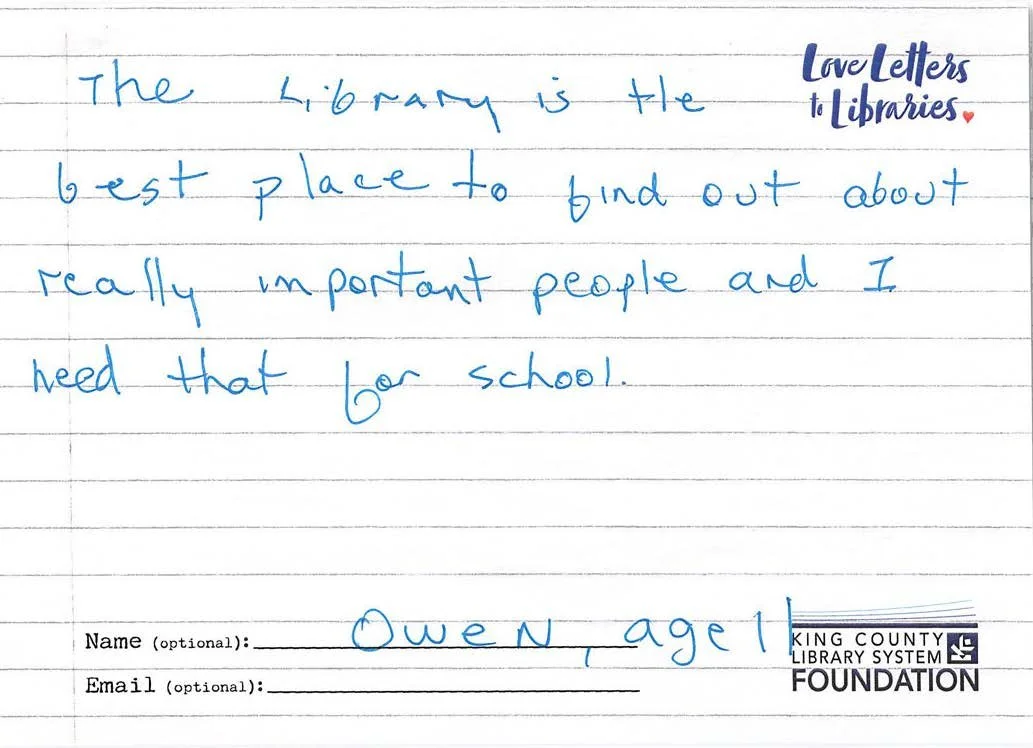 Love Letters
to Libraries
The Library is the
best place to find out about
really important people and I
need that for school.
Name (optional): Owen, age 11
Email (optional):
KING COUNTY
LIBRARY SYSTEM
FOUNDATION